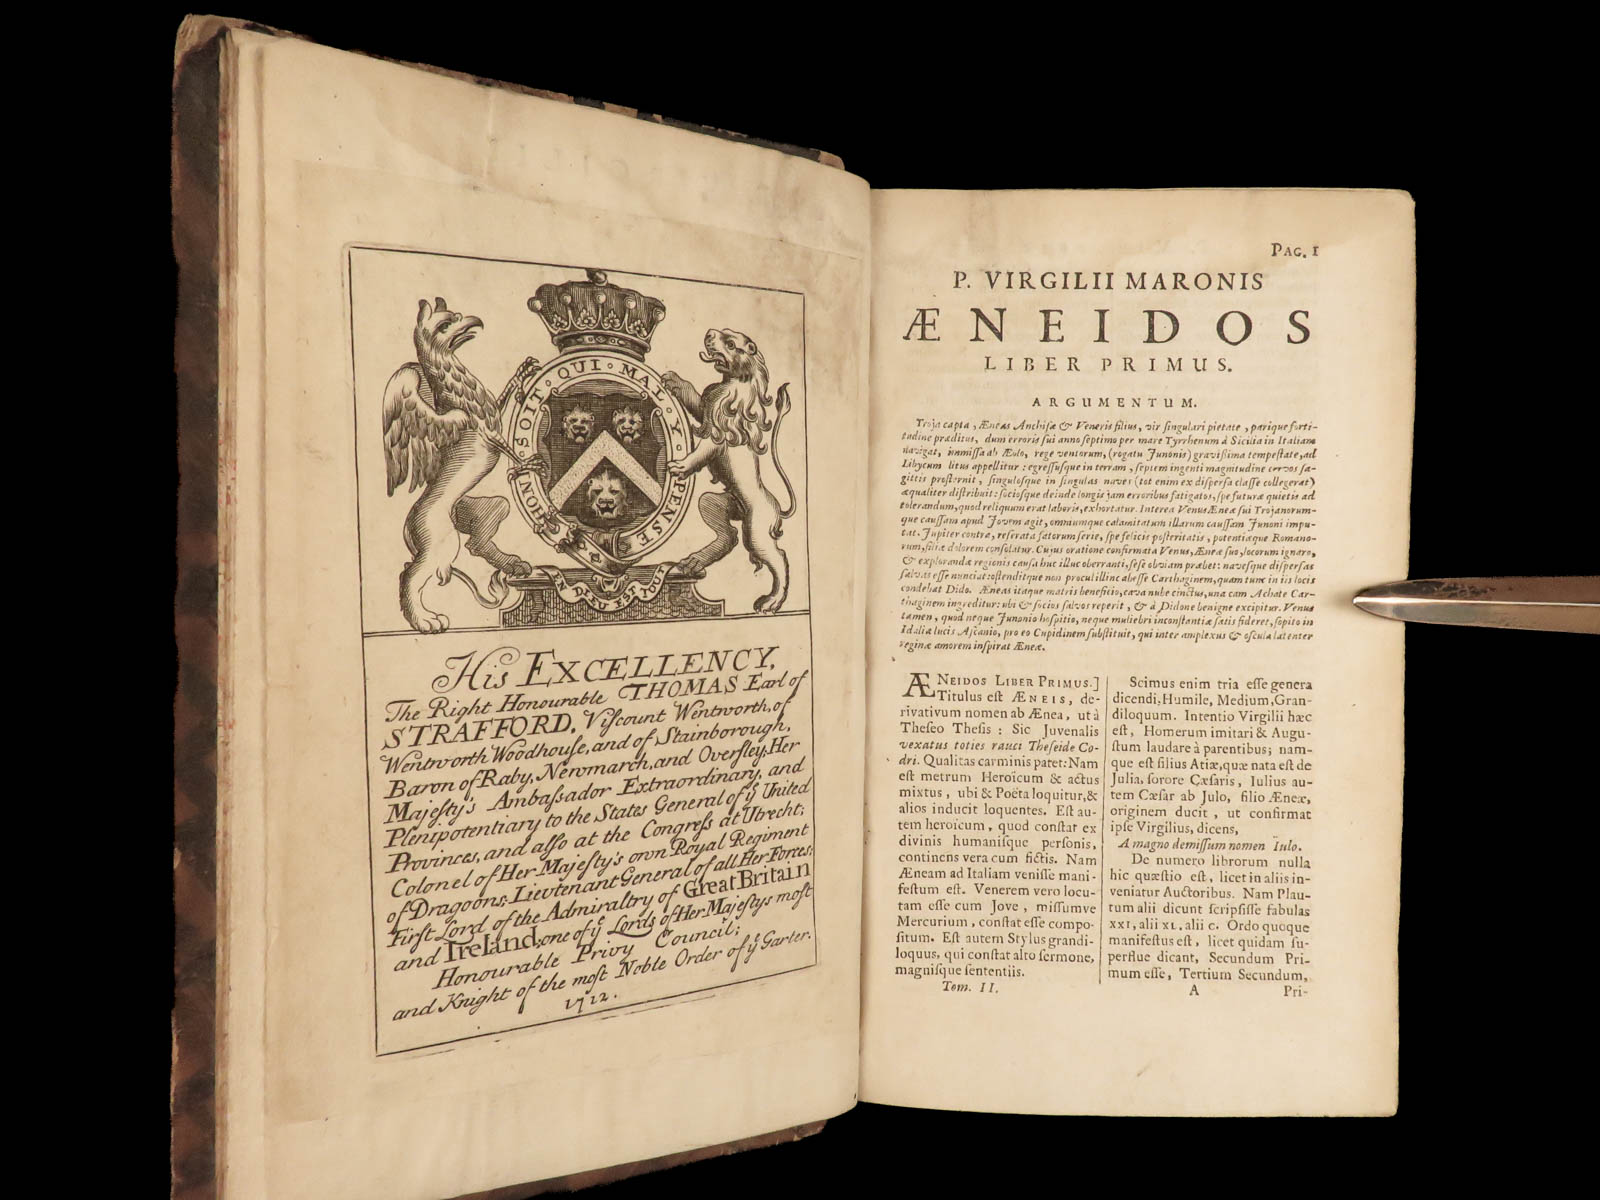 HONI · SOIT · QUI · MAL · Y · PENSE
EN DIEU EST TOUT
His EXCELLENCY,
The Right Honourable THOMAS Earl of
STRAFFORD, Viſcount Wentworth, of
Wentworth Woodhouſe, and of Stainborough,
Baron of Raby, Newmarch, and Overſley, Her
Majeſty's Ambaſsador Extraordinary, and
Plenipotentiary to the States General of yͤ United
Provinces, and alſo at the Congreſs at Utrecht;
Colonel of Her Majeſty's own Royal Regiment
of Dragoons; Lieutenant General of all Her Forces;
Firſt Lord of the Admiraltry of Great Britain
and Ireland; one of yͤ Lords of Her Majeſtys moſt
Honourable Privy Council;
and Knight of the moſt Noble Order of yͤ Garter.
1712.
PAG. 1
P. VIRGILII MARONIS
ÆNEIDOS
LIBER PRIMUS.
ARGUMENTUM.
Troja capta, Æneas Anchiſæ & Veneris filius, vir ſingulari pietate, parique forti-
tudine præditus, dum erroris ſui anno ſeptimo per mare Tyrrhenum à Sicilia in Italiam
navigat, immiſſa ab Æolo, rege ventorum, (rogatu Junonis) graviſſima tempeſtate, ad
Libycum litus appellitur: egreſſuſque in terram, ſeptem ingenti magnitudine cervos ſa-
gittis proſternit, ſinguloſque in ſingulas naves (tot enim ex diſperſa claſſe collegerat)
æqualiter diſtribuit: ſocioſque deinde longis jam erroribus fatigatos, ſpe futuræ quietis ad
tolerandum, quod reliquum erat laboris, exhortatur. Interea Venus Æneæ ſui Trojanorum-
que cauſſam apud Jovem agit, omniumque calamitatum illarum cauſſam Junoni impu-
tat. Jupiter contra, reſerata fatorum ſerie, ſpe felicis poſteritatis, potentiaque Romano-
rum, filiæ dolorem conſolatur. Cujus oratione confirmata Venus, Æneæ ſuo, locorum ignaro,
& explorandæ regionis cauſa huc illuc oberranti, ſeſe obviam præbet: naveſque diſperſas
ſalvas eſſe nunciat: oſtenditque non procul illinc abeſſe Carthaginem, quam tunc in iis locis
condebat Dido. Æneas itaque matris beneficio, cava nube cinctus, una cum Achate Car-
thaginem ingreditur: ubi & ſocios ſalvos reperit, & à Didone benigne excipitur. Venus
tamen, quod neque Junonio hoſpitio, neque muliebri inconſtantiæ ſatis fideret, ſopito in
Idaliæ lucis Aſcanio, pro eo Cupidinem ſubſtituit, qui inter amplexus & oſcula latenter
reginæ amorem inſpirat Æneæ.
ÆNEIDOS LIBER PRIMUS.]
Titulus eſt ÆNEIS, de-
rivativum nomen ab Ænea, ut à
Theſeo Theſis: Sic Juvenalis
vexatus toties rauci Theſeide Co-
dri. Qualitas carminis patet: Nam
eſt metrum Heroïcum & actus
mixtus, ubi & Poëta loquitur, &
alios inducit loquentes. Eſt au-
tem heroïcum, quod conſtat ex
divinis humaniſque perſonis,
continens vera cum fictis. Nam
Æneam ad Italiam veniſſe mani-
feſtum eſt. Venerem vero locu-
tam eſſe cum Jove, miſſumve
Mercurium, conſtat eſſe compo-
ſitum. Eſt autem Stylus grandi-
loquus, qui conſtat alto ſermone,
magniſque ſententiis.
Tom. II.
Scimus enim tria eſſe genera
dicendi, Humile, Medium, Gran-
diloquum. Intentio Virgilii hæc
eſt, Homerum imitari & Augu-
ſtum laudare à parentibus; nam-
que eſt filius Atiæ, quæ nata eſt de
Julia, ſorore Cæſaris, Iulius au-
tem Cæſar ab Julo, filio Æneæ,
originem ducit, ut confirmat
ipſe Virgilius, dicens,
A magno demiſſum nomen Iulo.
De numero librorum nulla
hic quæſtio eſt, licet in aliis in-
veniatur Auctoribus. Nam Plau-
tum alii dicunt ſcripſiſſe fabulas
XXI, alii XL, alii C. Ordo quoque
manifeſtus eſt, licet quidam ſu-
perflue dicant, Secundum Pri-
mum eſſe, Tertium Secundum,
A
Pri-